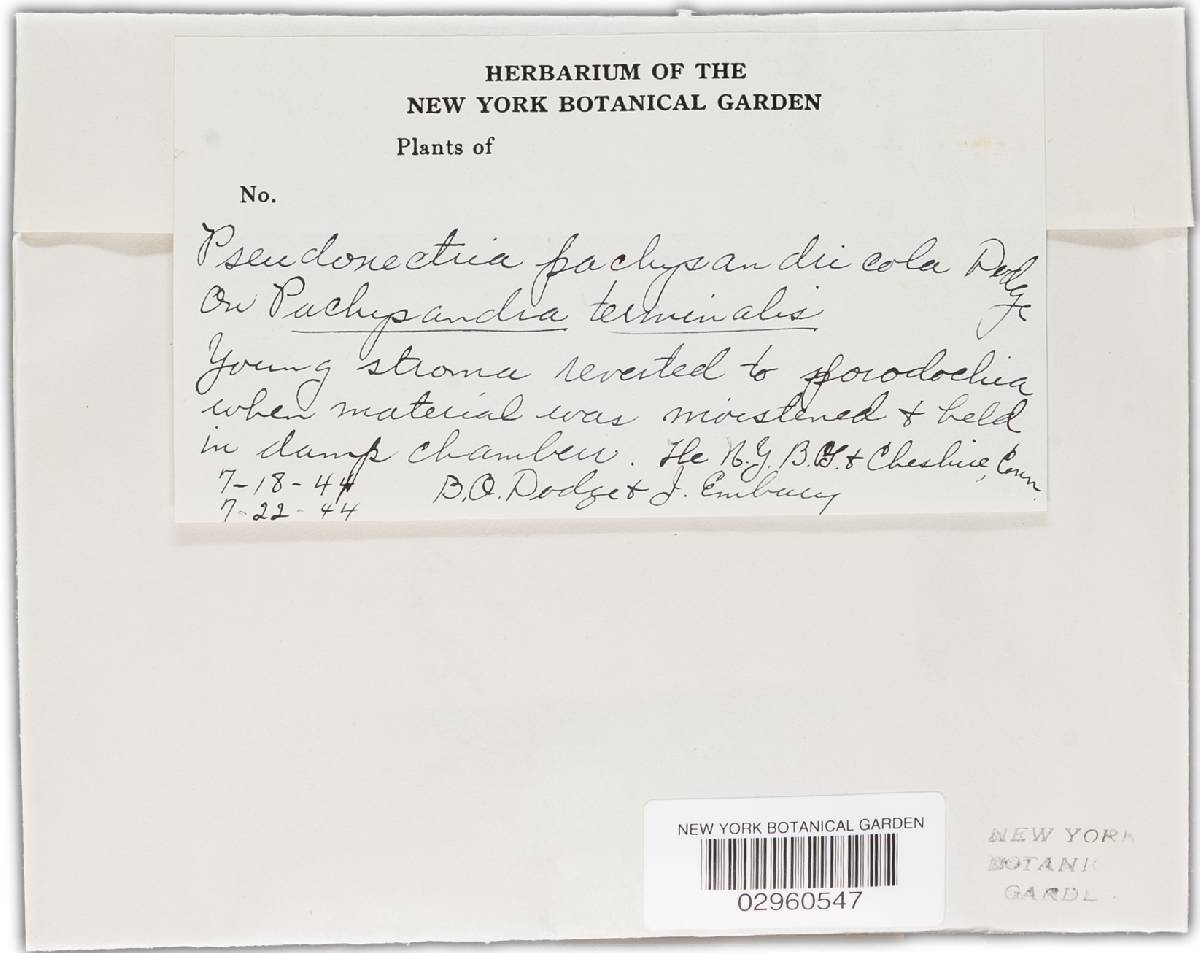 HERBARIUM OF THE
NEW YORK BOTANICAL GARDEN
Plants of
No.
Pseudonectria pachysandricola Dodge
On Pachysandra terminalis
Young stroma reverted to sporodochia
when material was moistened & held
in damp chamber. The N.Y.B.G. & Cheshire, Conn.
7-18-44 B.O. Dodge & J. Embury
7-22-44
NEW YORK BOTANICAL GARDEN
02960547
NEW YORK
BOTANI
GARDE